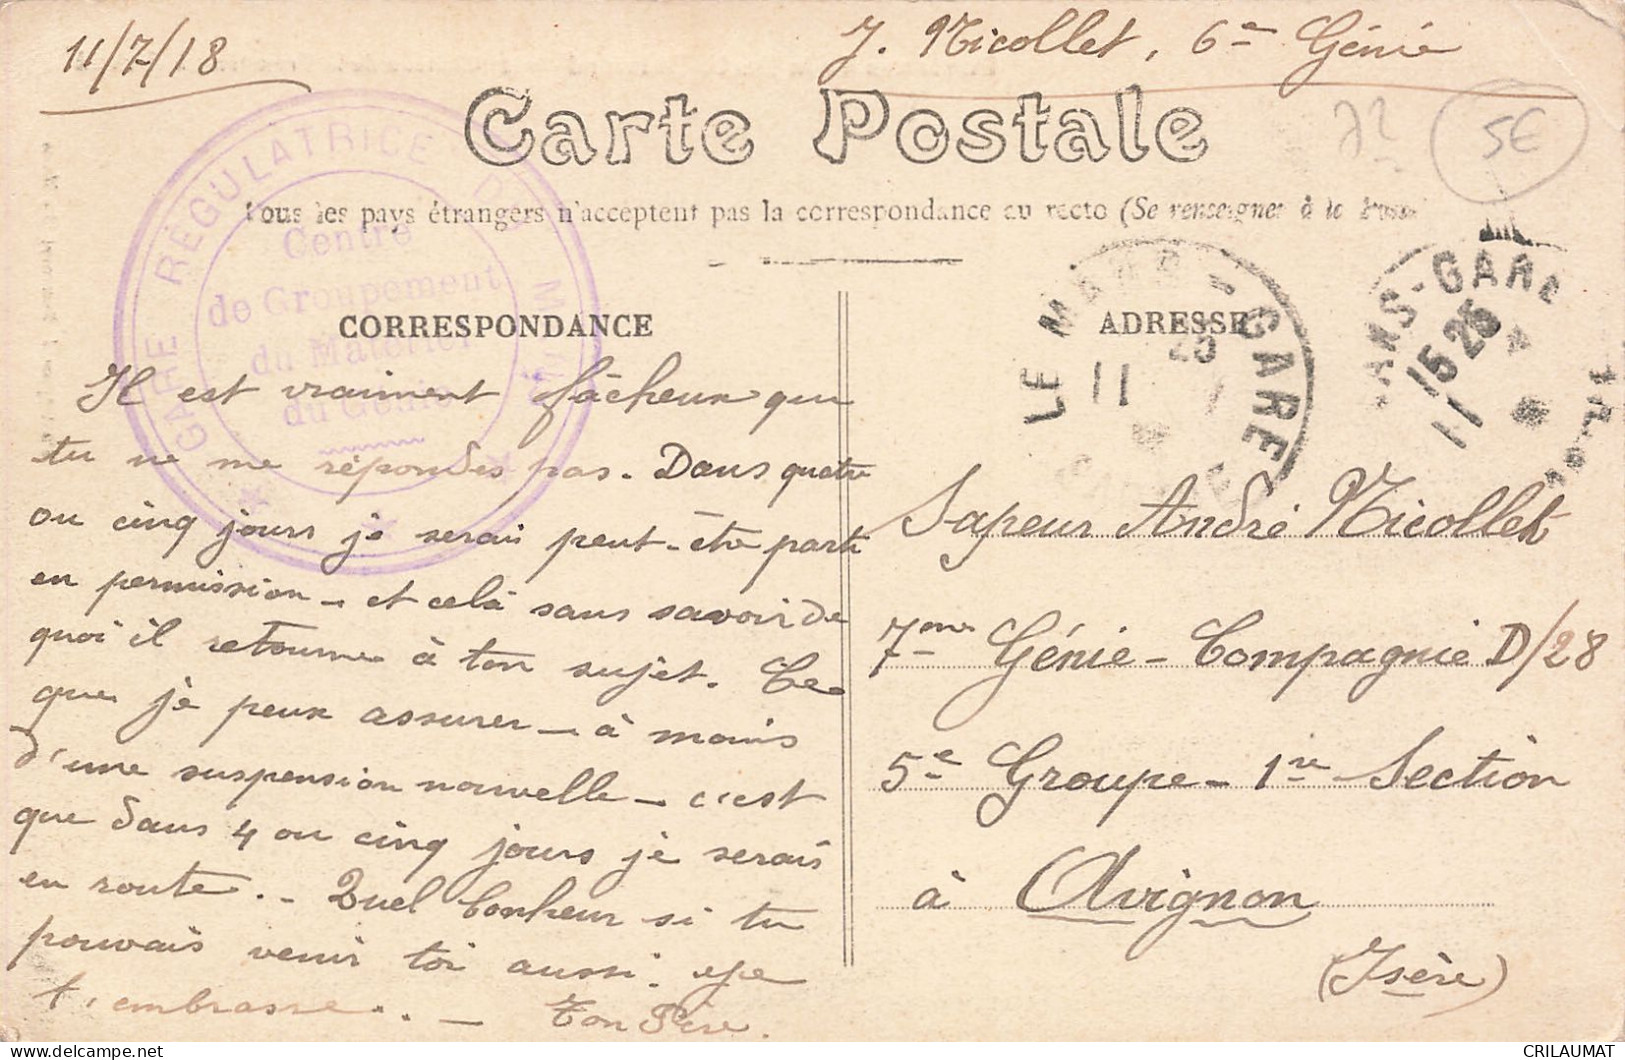 11/7/18
J. Nicollet, 6e Génie
Carte Postale
5€
Tous les pays étrangers n'acceptent pas la correspondance au recto (Se renseigner à la Poste
GARE RÉGULATRICE DU MANS
Centre
de Groupement
du Matériel
du Génie
CORRESPONDANCE
ADRESSE
LE MANS - GARE
11
MANS-GARE
15 25
11
Il est vraiment fâcheux que
tu ne me répondes pas. Dans quatre
ou cinq jours je serai peut-être parti
en permission - et celà sans savoir de
quoi il retourne à ton sujet. Ce
que je peux assurer - à moins
d'une suspension nouvelle - c'est
que dans 4 ou cinq jours je serais
en route. - Quel bonheur si tu
pouvais venir toi aussi. Je
t'embrasse.. - Ton Père.
Sapeur André Nicollet
7me Génie - Compagnie D/28
5e Groupe - 1re Section
à Avignon
(Isère)
CRILAUMAT